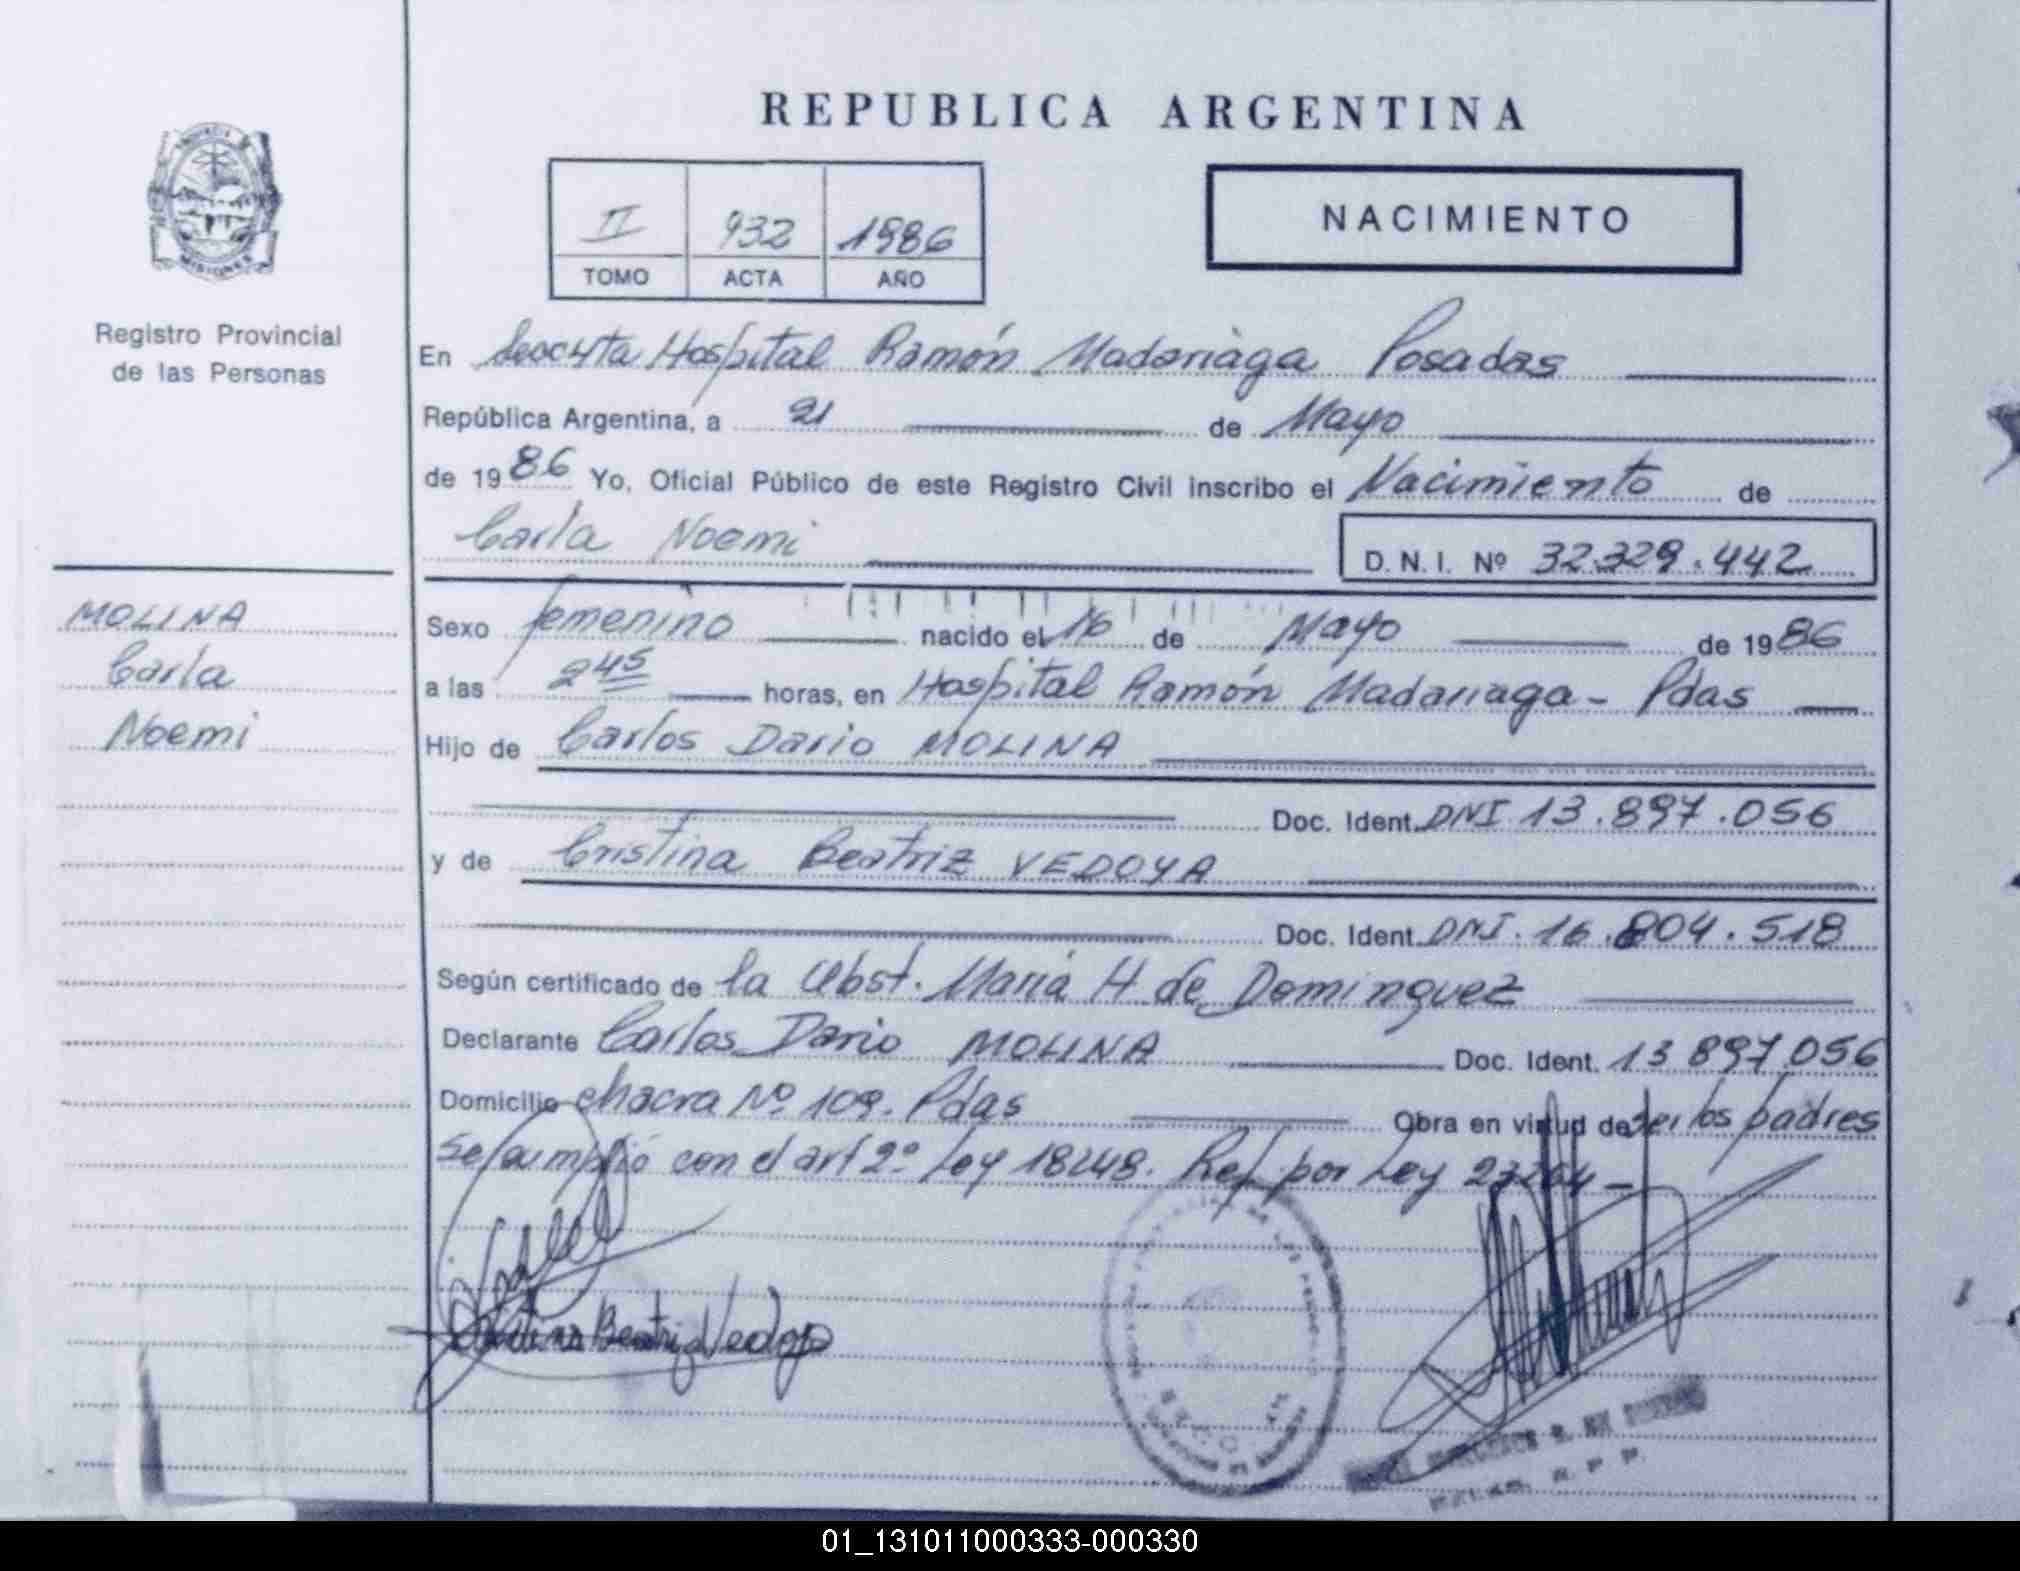 REPUBLICA ARGENTINA
PROVINCIA DE
MISIONES
Registro Provincial
de las Personas
II 932 1986
TOMO ACTA AÑO
NACIMIENTO
En Hospital Ramón Madariaga Posadas
República Argentina, a 21 de Mayo
de 1986 Yo, Oficial Público de este Registro Civil inscribo el Nacimiento de
Carla Noemi D.N.I. Nº 32.329.442
MOLINA
Carla
Noemi
Sexo femenino nacido el 16 de Mayo de 1986
a las 2 45 horas, en Hospital Ramón Madariaga - Pdas
Hijo de Carlos Dario MOLINA
Doc. Ident. DNI 13.897.056
y de Cristina Beatriz VEDOYA
Doc. Ident. DNI. 16.804.518
Según certificado de la Obst. Maria H de Dominguez
Declarante Carlos Dario MOLINA Doc. Ident. 13 897.056
Domicilio chacra Nº 109. Pdas Obra en virtud de ser los padres
Se cumplió con el art 2º Ley 18248. Ref. por Ley 23264 -
Cristina Beatriz Vedoya
R. P. P.
01_131011000333-000330